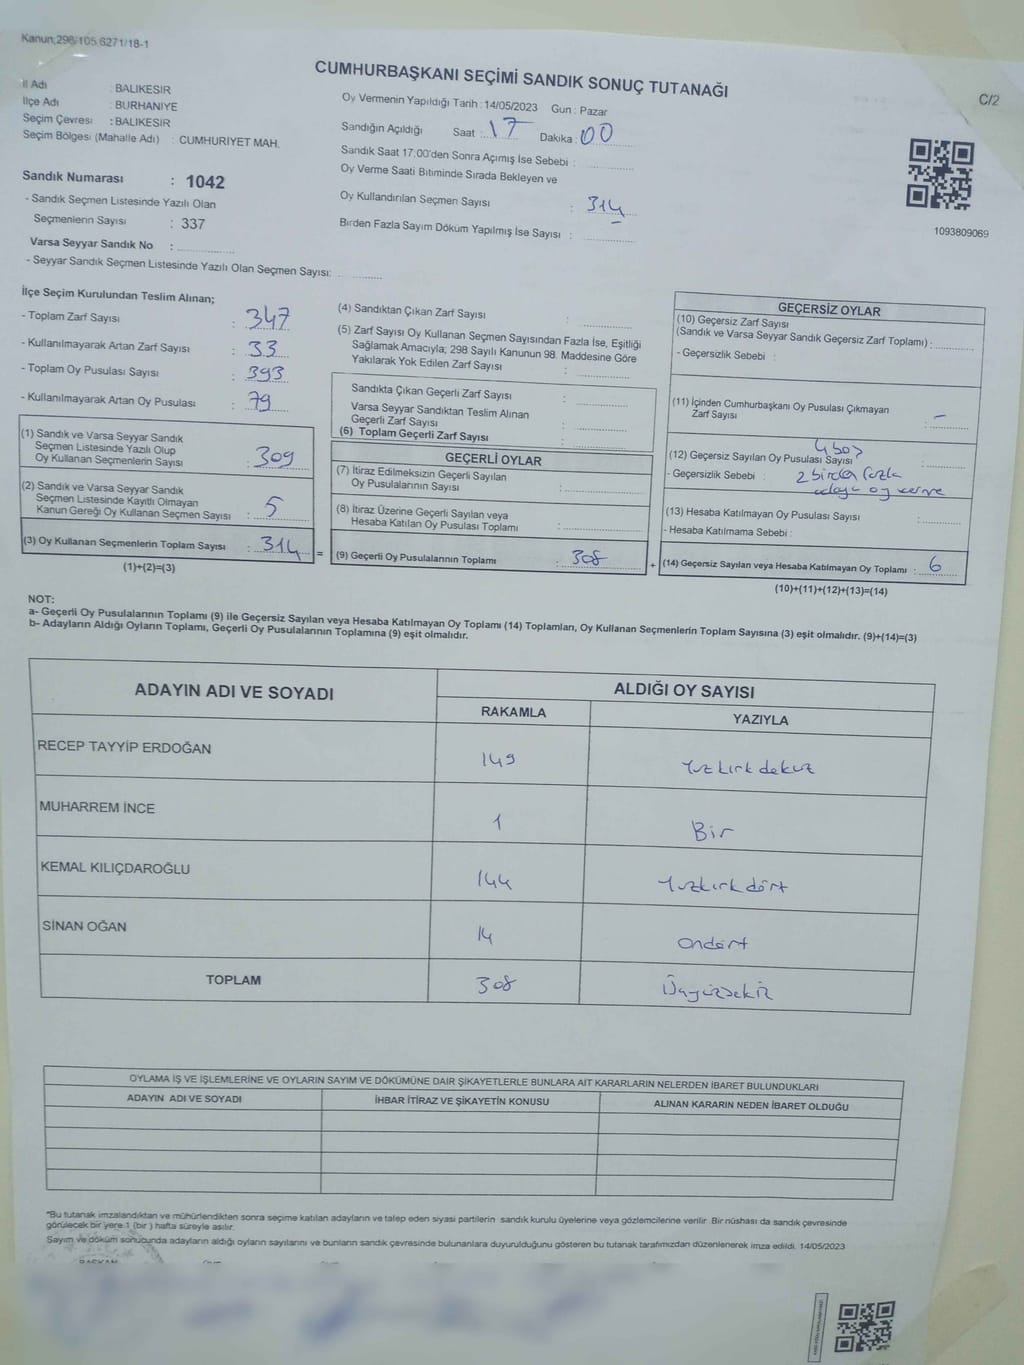 Kanun;298/105 6271/18-1
CUMHURBAŞKANI SEÇİMİ SANDIK SONUÇ TUTANAĞI
C/2
İl Adı : BALIKESİR
İlçe Adı : BURHANİYE
Seçim Çevresi : BALIKESİR
Seçim Bölgesi (Mahalle Adı) : CUMHURİYET MAH.
Sandık Numarası : 1042
- Sandık Seçmen Listesinde Yazılı Olan
Seçmenlerin Sayısı : 337
Varsa Seyyar Sandık No :
- Seyyar Sandık Seçmen Listesinde Yazılı Olan Seçmen Sayısı:
Oy Vermenin Yapıldığı Tarih : 14/05/2023 Gün : Pazar
Sandığın Açıldığı Saat : 17 Dakika : 00
Sandık Saat 17:00'den Sonra Açımış İse Sebebi :
Oy Verme Saati Bitiminde Sırada Bekleyen ve
Oy Kullandırılan Seçmen Sayısı : 314
Birden Fazla Sayım Döküm Yapılmış İse Sayısı :
1093809069
İlçe Seçim Kurulundan Teslim Alınan;
- Toplam Zarf Sayısı : 347
- Kullanılmayarak Artan Zarf Sayısı : 33
- Toplam Oy Pusulası Sayısı : 393
- Kullanılmayarak Artan Oy Pusulası : 79
(1) Sandık ve Varsa Seyyar Sandık
Seçmen Listesinde Yazılı Olup
Oy Kullanan Seçmenlerin Sayısı : 309
(2) Sandık ve Varsa Seyyar Sandık
Seçmen Listesinde Kayıtlı Olmayan
Kanun Gereği Oy Kullanan Seçmen Sayısı : 5
(3) Oy Kullanan Seçmenlerin Toplam Sayısı : 314 =
(1)+(2)=(3)
(4) Sandıktan Çıkan Zarf Sayısı :
(5) Zarf Sayısı Oy Kullanan Seçmen Sayısından Fazla İse, Eşitliği
Sağlamak Amacıyla; 298 Sayılı Kanunun 98. Maddesine Göre
Yakılarak Yok Edilen Zarf Sayısı :
Sandıkta Çıkan Geçerli Zarf Sayısı :
Varsa Seyyar Sandıktan Teslim Alınan
Geçerli Zarf Sayısı :
(6) Toplam Geçerli Zarf Sayısı :
GEÇERLİ OYLAR
(7) İtiraz Edilmeksizin Geçerli Sayılan
Oy Pusulalarının Sayısı :
(8) İtiraz Üzerine Geçerli Sayılan veya
Hesaba Katılan Oy Pusulası Toplamı :
(9) Geçerli Oy Pusulalarının Toplamı : 308 +
GEÇERSİZ OYLAR
(10) Geçersiz Zarf Sayısı
(Sandık ve Varsa Seyyar Sandık Geçersiz Zarf Toplamı) :
- Geçersizlik Sebebi :
(11) İçinden Cumhurbaşkanı Oy Pusulası Çıkmayan
Zarf Sayısı : -
4 boş
(12) Geçersiz Sayılan Oy Pusulası Sayısı :
- Geçersizlik Sebebi : 2 birden fazla
adaya oy verme
(13) Hesaba Katılmayan Oy Pusulası Sayısı :
- Hesaba Katılmama Sebebi :
(14) Geçersiz Sayılan veya Hesaba Katılmayan Oy Toplamı : 6
(10)+(11)+(12)+(13)=(14)
NOT:
a- Geçerli Oy Pusulalarının Toplamı (9) ile Geçersiz Sayılan veya Hesaba Katılmayan Oy Toplamı (14) Toplamları, Oy Kullanan Seçmenlerin Toplam Sayısına (3) eşit olmalıdır. (9)+(14)=(3)
b- Adayların Aldığı Oyların Toplamı, Geçerli Oy Pusulalarının Toplamına (9) eşit olmalıdır.
ADAYIN ADI VE SOYADI ALDIĞI OY SAYISI
RAKAMLA YAZIYLA
RECEP TAYYİP ERDOĞAN 149 Yüzkırk dokuz
MUHARREM İNCE 1 Bir
KEMAL KILIÇDAROĞLU 144 Yüzkırk dört
SİNAN OĞAN 14 Ondört
TOPLAM 308 Üçyüzsekiz
OYLAMA İŞ VE İŞLEMLERİNE VE OYLARIN SAYIM VE DÖKÜMÜNE DAİR ŞİKAYETLERLE BUNLARA AİT KARARLARIN NELERDEN İBARET BULUNDUKLARI
ADAYIN ADI VE SOYADI İHBAR İTİRAZ VE ŞİKAYETİN KONUSU ALINAN KARARIN NEDEN İBARET OLDUĞU
*Bu tutanak imzalandıktan ve mühürlendikten sonra seçime katılan adayların ve talep eden siyasi partilerin sandık kurulu üyelerine veya gözlemcilerine verilir. Bir nüshası da sandık çevresinde
görülecek bir yere 1 (bir ) hafta süreyle asılır.
Sayım ve döküm sonucunda adayların aldığı oyların sayılarını ve bunların sandık çevresinde bulunanlara duyurulduğunu gösteren bu tutanak tarafımızdan düzenlenerek imza edildi. 14/05/2023
BAŞKAN